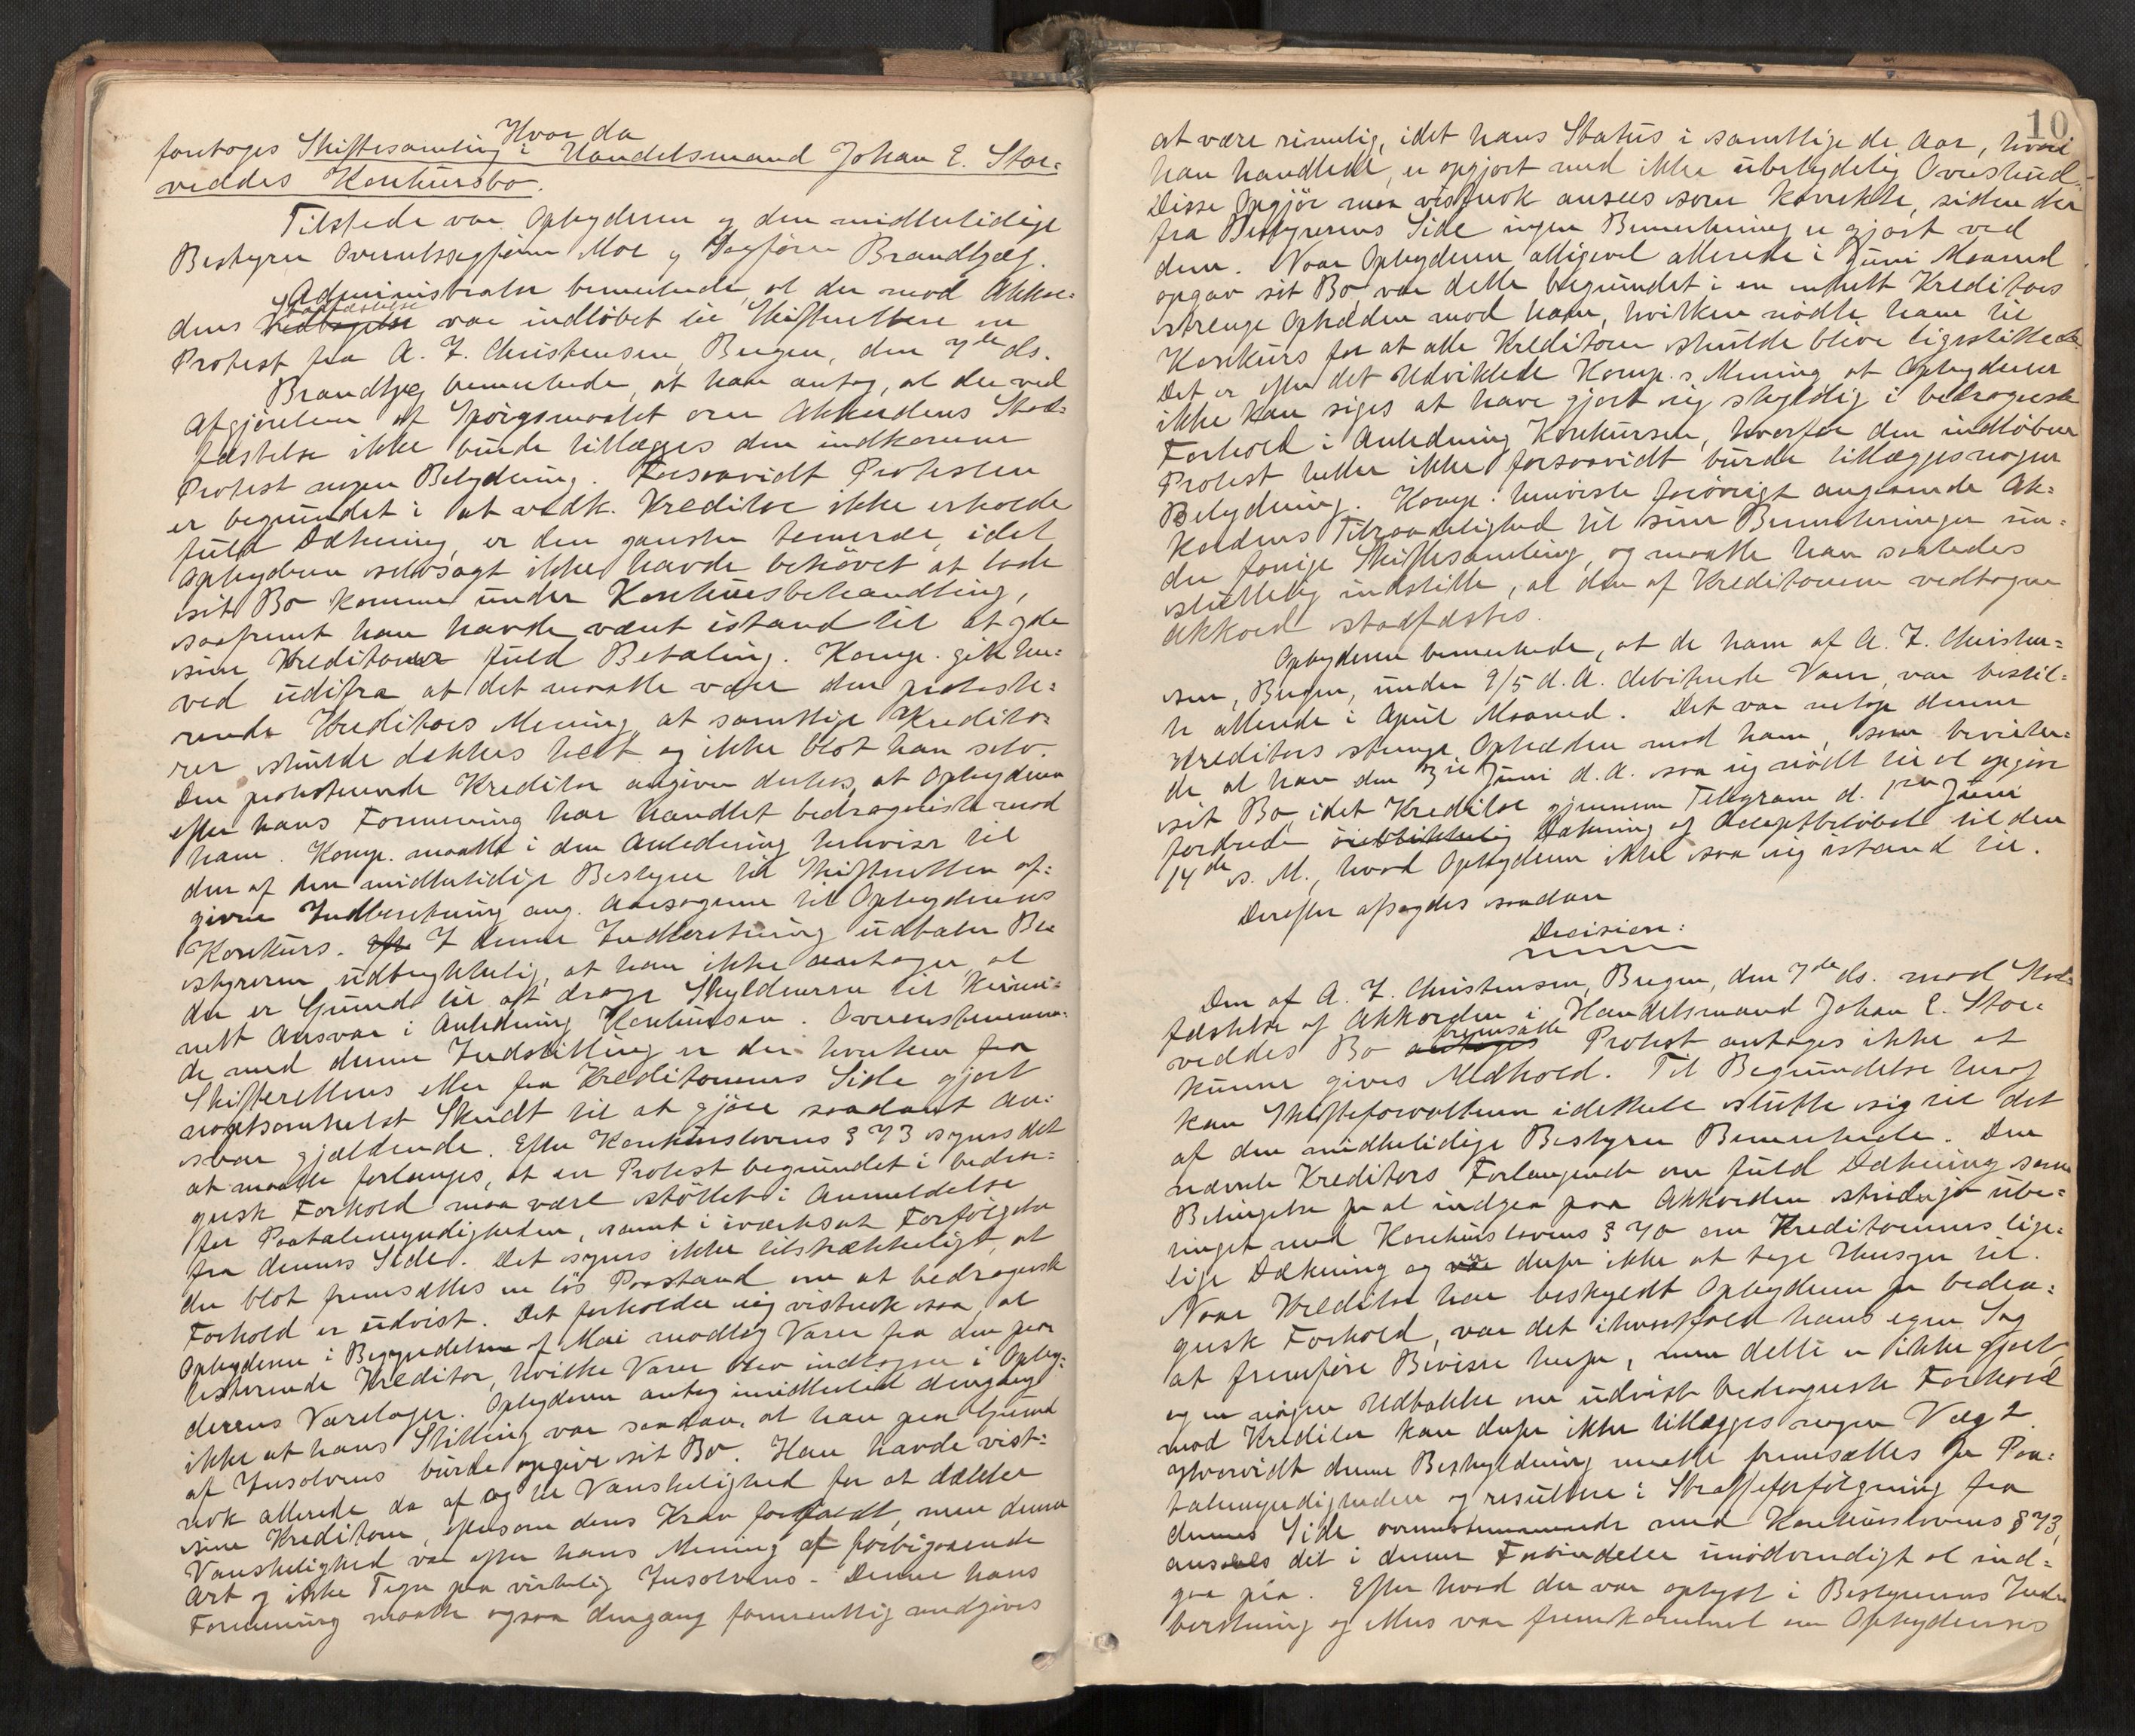 Hvor da
foretoges Skiftesamling i Handelsmand Johan E. Stor=
veddes Konkursbo.
Tilstede var Opbyderen og den midlertidige
Bestyrer Overretssagfører Moe og Sagfører Brandtzæg.
Administrator bemerkede at der mod Akkor=
dens Stadfæstelse var indløbet til Skifteretten en
Protest fra A. Z. Christensen, Bergen, den 7de ds.
Brandtzæg bemerkede, at han antog, at der ved
Afgjørelsen af Spørgsmaalet om Akkordens Stad=
fæstelse ikke burde tillægges den indkomne
Protest nogen Betydning. Forsaavidt Protesten
er begrundet i at vedk. Kreditor ikke erholder
fuld Dækning, er den ganske temerær, idet
Opbyderen selvsagt ikke havde behøvet at lade
sit Bo komme under Konkursbehandling,
saafremt han havde været istand til at yde
sine Kreditorer fuld Betaling. Komp. gik her=
ved udifra at det maatte være den proteste=
rende Kreditors Mening, at samtlige Kredito=
rer skulde dækkes helt og ikke blot han selv.
Den protesterende Kreditor angiver derhos, at Opbyderen
efter hans Formening har handlet bedragerisk mod
ham. Komp. maatte i den Anledning henvise til
den af den midlertidige Bestyrer til Skifteretten af=
givne Indberetning ang. Aarsagerne til Opbyderens
Konkurs. I denne Indberetning udtaler Be
styreren udtrykkelig, at han ikke antager at
der er Grund til at drage Skyldneren til Krimi=
nelt Ansvar i Anledning Konkursen. Overensstemmen=
de med denne Indstilling er der hverken fra
Skifterettens eller fra Kreditorernes Side gjort
nogetsomhelst Skridt til at gjøre saadant An=
svar gjældende. Efter Konkurslovens § 73 synes det
at maatte forlanges, at en Protest begrundet i bedra=
gersk Forhold maa være støttet i Anmeldelse
for Paatalemyndigheden, samt i iværksat Forfølgelse
fra dennes Side. Det synes ikke tilstrækkeligt, at
der blot fremsættes en løs Paastand om at bedragersk
Forhold er udvist. Det forholder sig vistnok saa, at
Opbyderen i Begyndelsen af Mai modtog Varer fra den pro
testerende Kreditor, hvilke Varer blev indtagne i Opby=
derens Varelager. Opbyderen antog imidlertid dengang
ikke at hans Stilling var saadan, at han paa Grund
af Insolvens burde opgive sit Bo. Han havde vist=
nok allerede da af og til Vanskelighed for at dække
sine Kreditorer, eftersom deres Krav forfaldt, men denne
Vanskelighed var efter hans Mening af forbigaaende
Art og ikke Tegn paa virkelig Insolvens. Denne hans
Formening maatte ogsaa dengang formentlig medgives
10.
at være rimelig, idet hans Status i samtlige de Aar, hvori
han handlede, er opgjort med ikke ubetydelig Overskud.
Disse Opgjør maa vistnok ansees som korrekte, siden der
fra Bestyrerens Side ingen Bemerkning er gjort ved
dem. Naar Opbyderen alligevel allerede i Juni Maaned
opgav sit Bo, var dette begrundet i en enkelt Kreditors
strenge Optræden mod ham, hvilken nødte ham til
Konkurs for at alle Kreditorer skulde blive ligestillede.
Det er efter det Udviklede Komp.s Mening at Opbyderen
ikke kan siges at have gjort sig skyldig i bedragersk
Forhold i Anledning Konkursen, hvorfor den indløbne
Protest heller ikke forsaavidt burde tillægges nogen
Betydning. Komp. henviste forøvrigt angaaende Ak=
kordens Tilraadelighed til sine Bemerkninger un=
der forrige Skiftesamling, og maatte han saaledes
sluttelig indstille, at den af Kreditorerne vedtagne
Akkord stadfæstes.
Opbyderen bemerkede, at de ham af A. Z. Christen=
sen, Bergen, under 9/5 d. A. debiterede Varer, var bestil=
te allerede i April Maaned. Det var netop denne
Kreditors strenge Optræden mod ham, som bevirke=
de at han den Juni d. A. saa sig nødt til at opgive
sit Bo, idet Kreditor gjennem Telegram d. Juni
fordrede øieblikkelig Dækning af Acceptbeløbet til den
14de s. M., hvad Opbyderen ikke saa sig istand til.
Derefter afsagdes saadan
Decision:
Den af A. Z. Christensen, Bergen, den 7de ds. mod Stad=
fæstelse af Akkorden i Handelsmand Johan E. Stor=
veddes Bo fremsatte Protest antages ikke at
kunne gives Medhold. Til Begrundelse heraf
kan Skifteforvalteren idethele slutte sig til det
af den midlertidige Bestyrer Bemerkede. Den
nævnte Kreditors Forlangende om fuld Dækning som
Betingelse for at indgaa paa Akkorden strider jo ube=
tinget mod Konkurslovens § 70 om Kreditorernes lige=
lige Dækning og er derfor ikke at tage Hensyn til.
Naar Kreditor har beskyldt Opbyderen for bedra=
gersk Forhold, var det i hvertfald hans egen Sag
at fremføre Beviser herfor, men dette er ikke gjort,
og en nøgen Udtalelse om udvist bedragersk Forhold
mod Kreditor kan derfor ikke tillægges nogen Vægt.
Hvorvidt denne Beskyldning maatte fremsættes for Paa=
talemyndigheden og resultere i Straffeforfølgning fra
dennes Side overensstemmende med Konkurslovens § 73,
ansees det i denne Forbindelse unødvendigt at ind=
gaa paa. Efter hvad der var oplyst i Bestyrerens Inde
beretning og ellers var fremkommet om Opbyderens